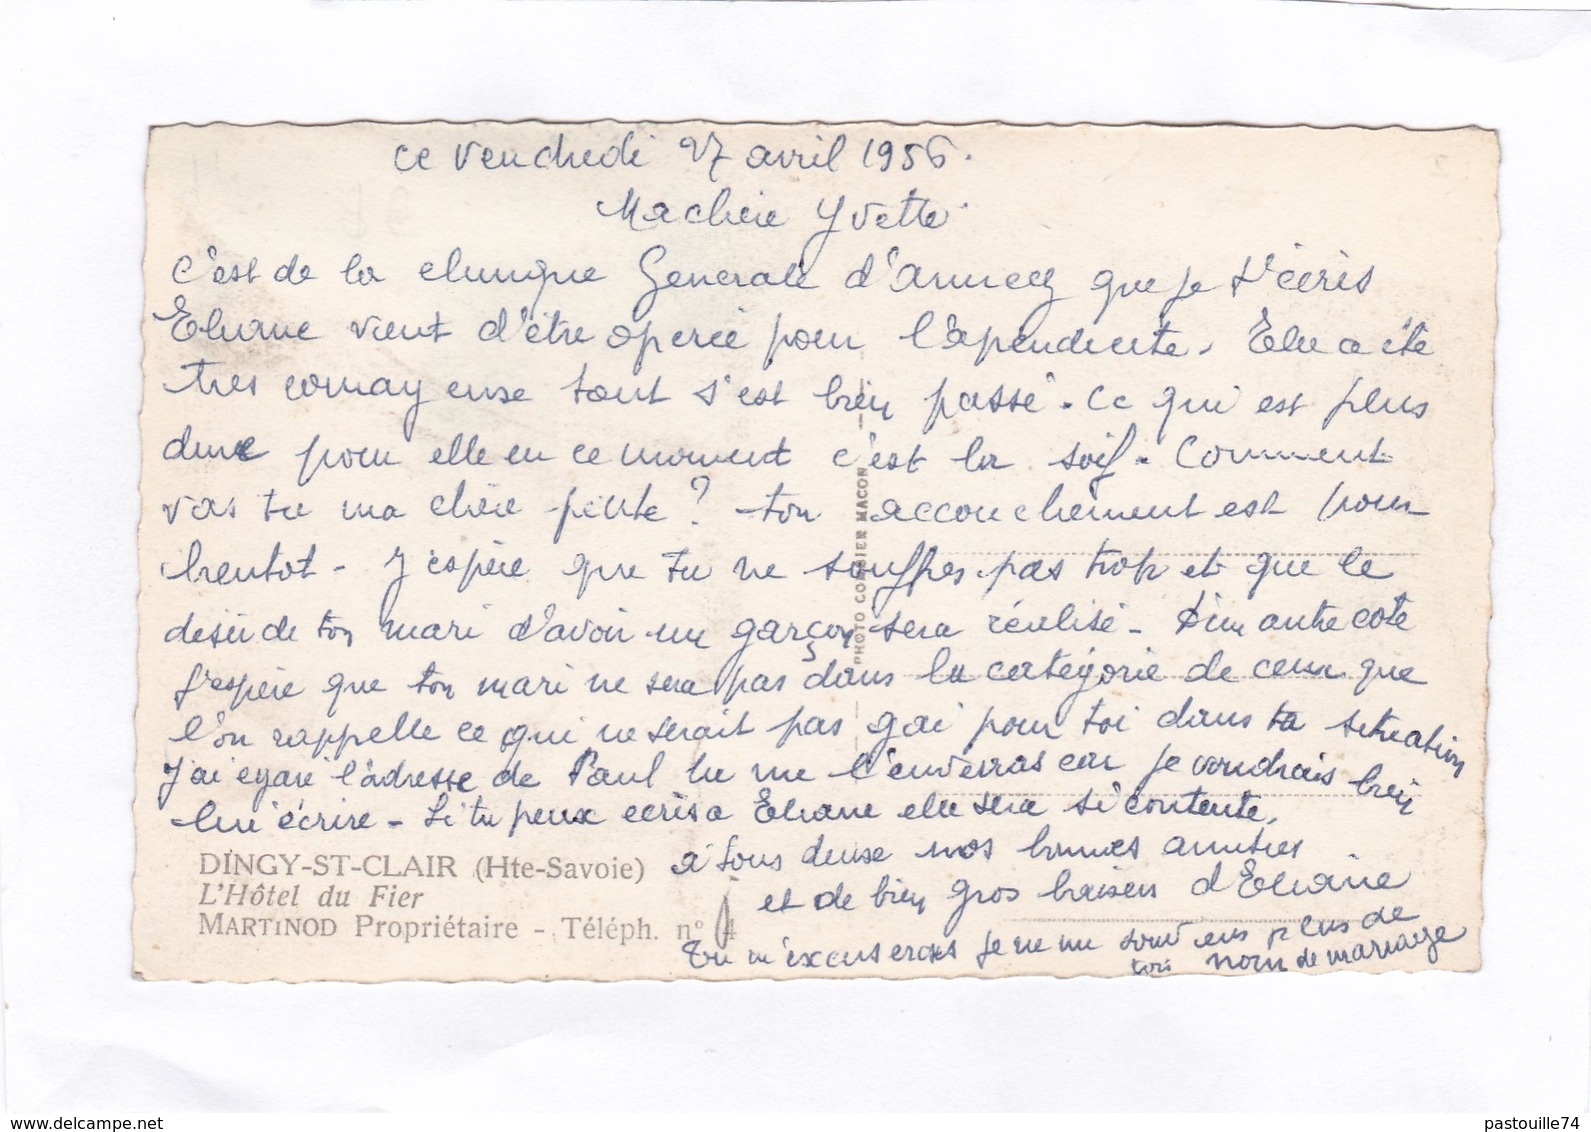 ce vendredi 27 avril 1956.
Ma chère Yvette
C'est de la clinique Generale d'annecy que je t'écris
Eliane vient d'être operée pour l'apendicite. Elle a été
tres courageuse tout s'est bien passé. Ce qui est plus
dure pour elle en ce moment c'est la soif. Comment
vas tu ma chère petite ? ton accouchement est pour
bientot - J'espère que tu ne souffres pas trop et que le
désir de ton mari d'avoir un garçon sera réalisé - D'un autre coté
j'espère que ton mari ne sera pas dans la catégorie de ceux que
l'on rappelle ce qui ne serait pas gai pour toi dans ta situation
J'ai egaré l'adresse de Paul tu me l'enverras car je voudrais bien
lui écrire - Si tu peux ecris a Eliane elle sera si contente.
a tous deux nos bonnes amitiés
et de bien gros baisers d'Eliane
Tu m'excuseras je ne me souviens plus de
ton nom de mariage
DINGY-ST-CLAIR (Hte-Savoie)
L'Hôtel du Fier
MARTINOD Propriétaire - Téléph. n° 4
PHOTO COMBIER MACON
www.delcampe.net
pastouille74